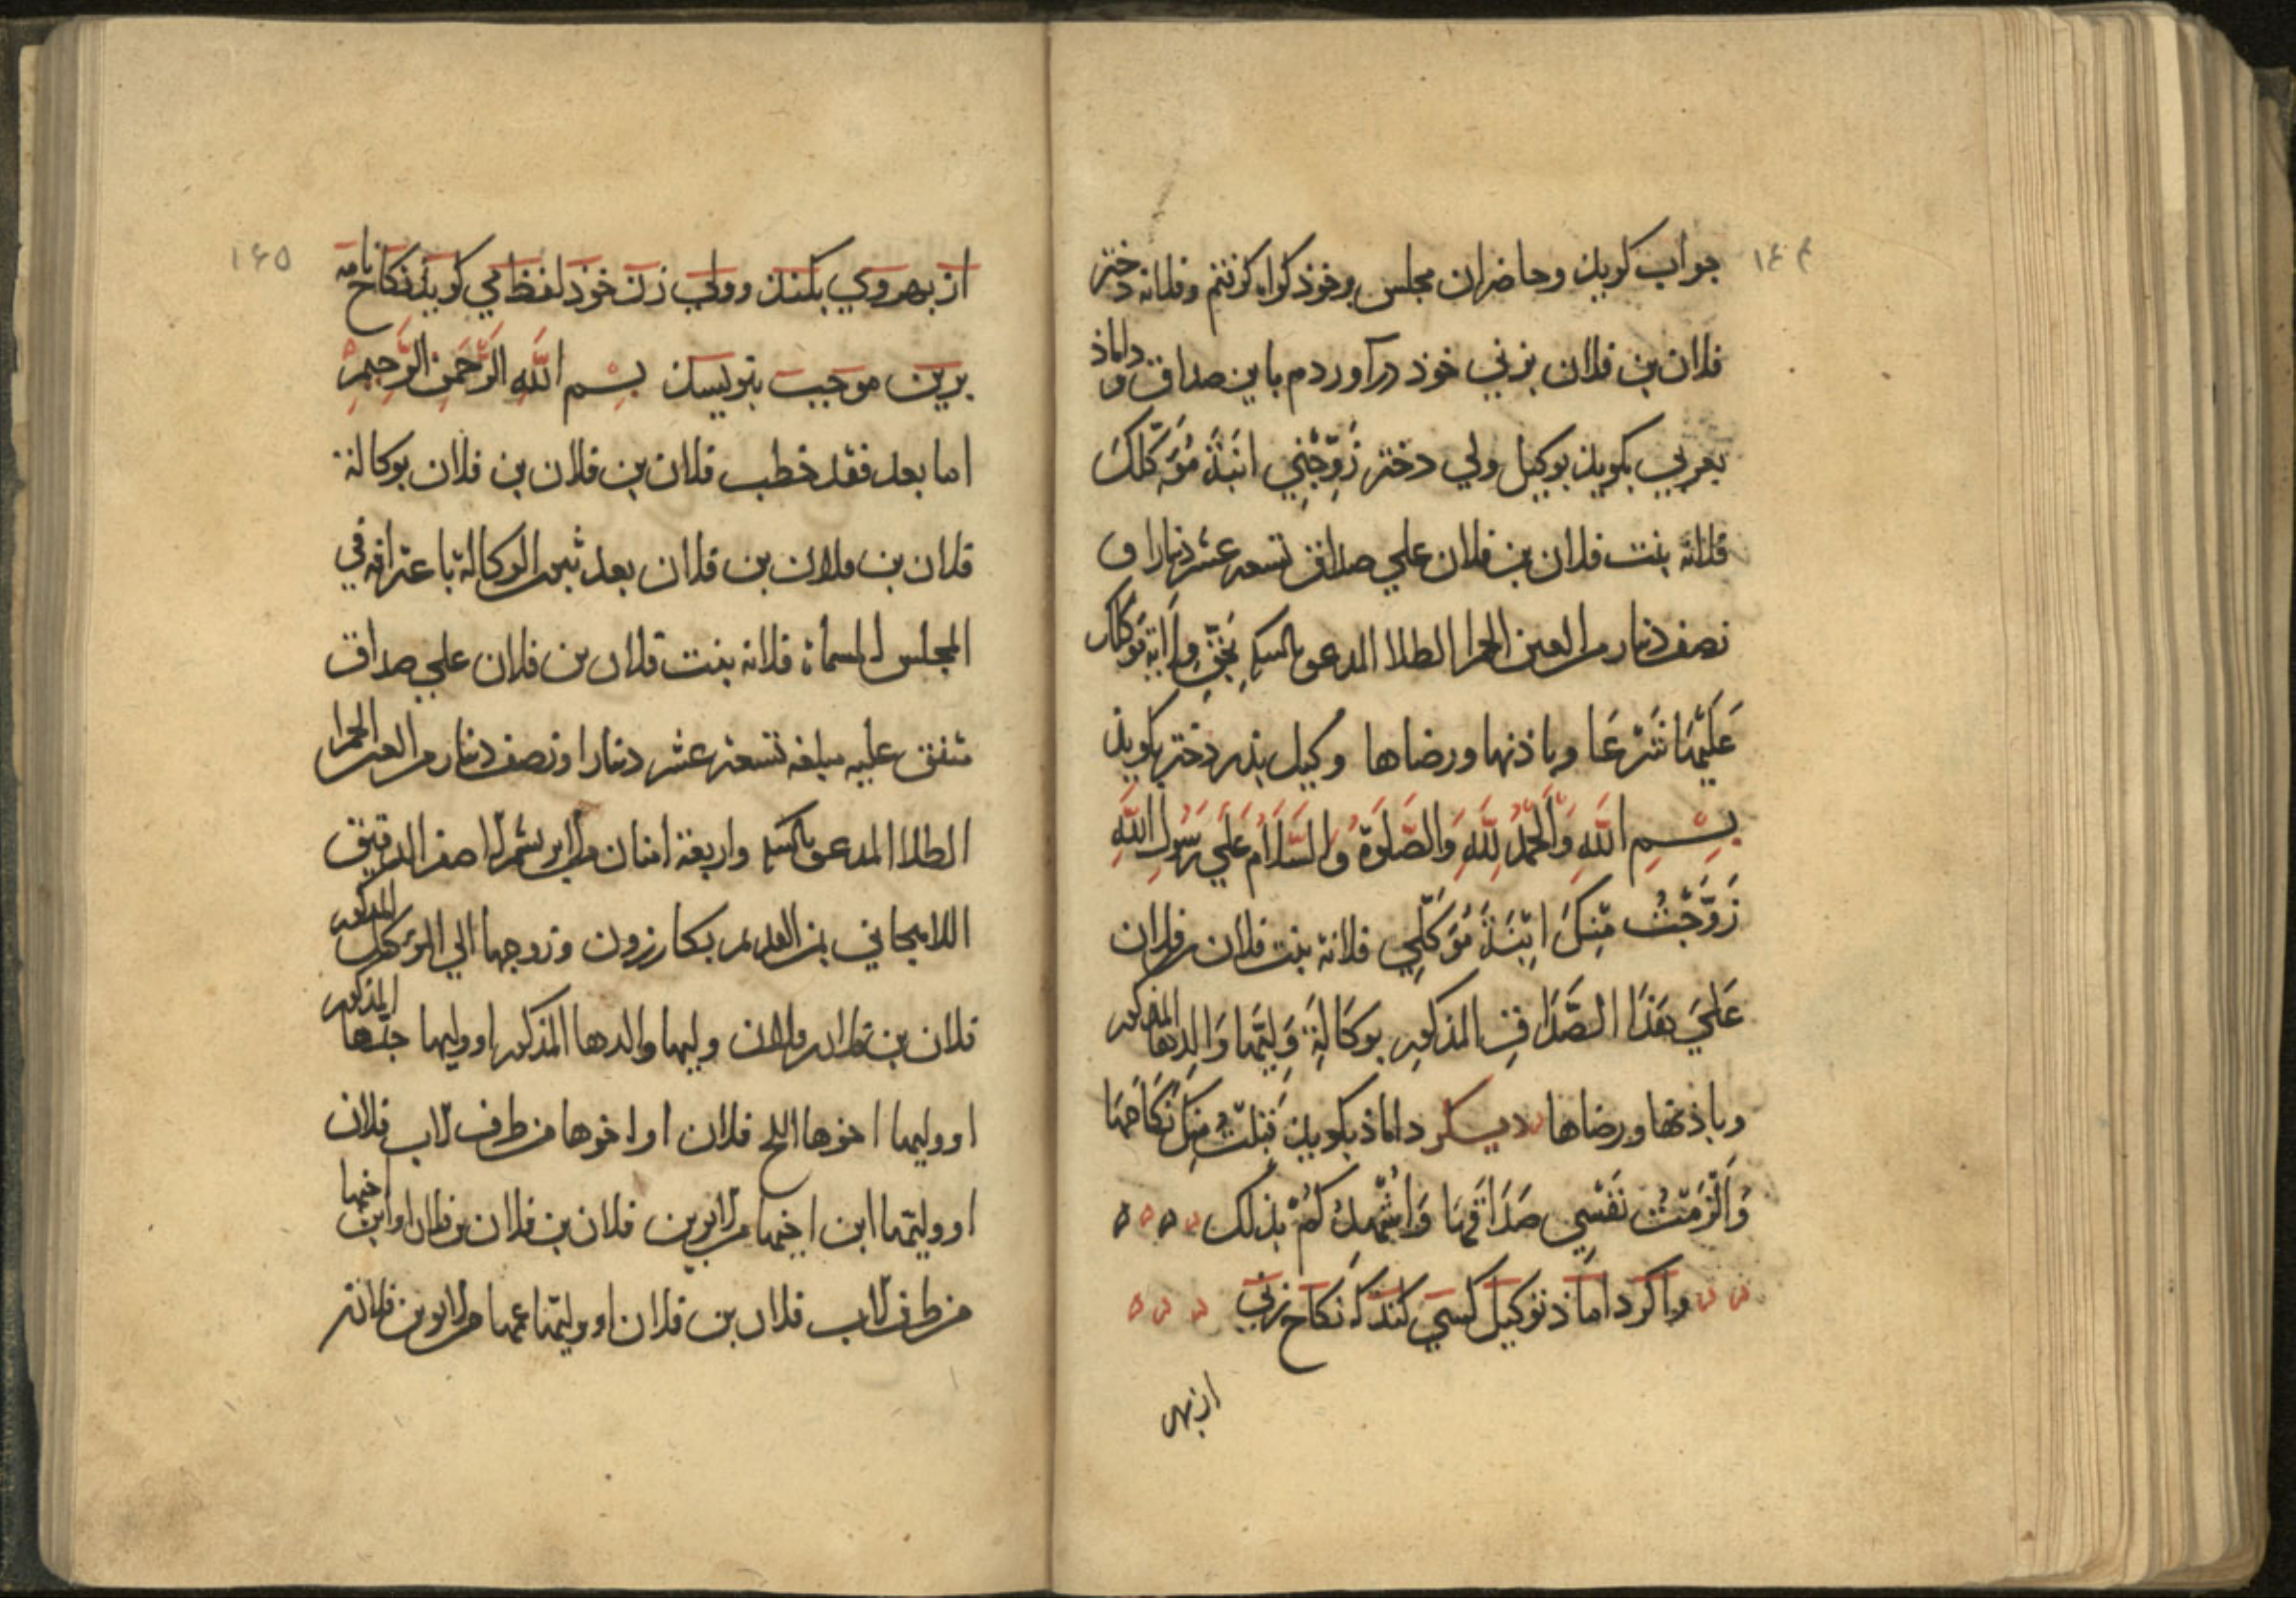 ١٤٤
جواب كويند وحاضران مجلس وخوذ كواه كرفتم وفلانه دختر
فلان بن فلان بزني خوذ درآوردم باين صداق و داماذ
بعربي بكويذ بوكيل ولي دختر زَوِّجْنِي ابنَةَ مُوَكِّلِكَ
فلانة بنت فلان بن فلان علي صداق تسعه عشر دينارا و
نصف دينار من العين الحمرا الطلا المدعو
عَلَيْهَا شَرْعَا وباذنها ورضاها وكيل بذر دختر بكويذ
بِسْمِ اللَّهِ وَالْحَمْدُ لِلَّهِ وَالصَّلَوةُ وَالسَّلَامُ عَلَي رَسُولِ اللَّهِ
زَوَّجْتُ مِنْكَ ابْنَةَ مُوَكِّلِي فلانة بنت فلان بن فلان
عَلَيَ هَذَا الصَّدَاقِ المذكور بوكَالَةِ وَلِيِّهَا وَالِدِهَا المذكور
وباذنها ورضاها ديكر داماذ بكويذ قَبِلْتُ مِنْكَ نِكَاحَهَا
وَأَلْزَمْتُ نَفْسِي صَدَاقَهَا وَاُشْهِدُ كُمْ بذلك ه ه ه ه
واكر داماذ توكيل كسي كند كه نكاح زني
از بهر
١٤٥
از بهر وي بكند وولي زن خوذ لفظ مي كويذ نكاح نامه
برين موجب بنويسند بِسْم اللَّهِ الرَّحْمَنِ الرَّحِيمِ
اما بعد فقد خطب فلان بن فلان بن فلان بوكالة
فلان بن فلان بن فلان بعد ثبوت الوكالة باعترافه في
المجلس المسماة فلانه بنت فلان بن فلان علي صداق
متفق عليه مبلغه تسعة عشر دينارا ونصف دينار من العين الحمرا
الطلا المدعو واربعة امنان من الابريشم الاصفر الدقيق
اللاهيجاني بمن العدل بكازرون وزوجها الي الموكل المذكور
فلان بن فلان بن فلان وليها والدها المذكور او وليها جدها المذكور
او وليها اخوها فلان او اخوها من طرف الاب فلان
او وليها ابن اخيها من الابوين فلان بن فلان بن فلان او ابن اخيها
من طرف الاب فلان بن فلان او وليها عمها من الابوين فلانه